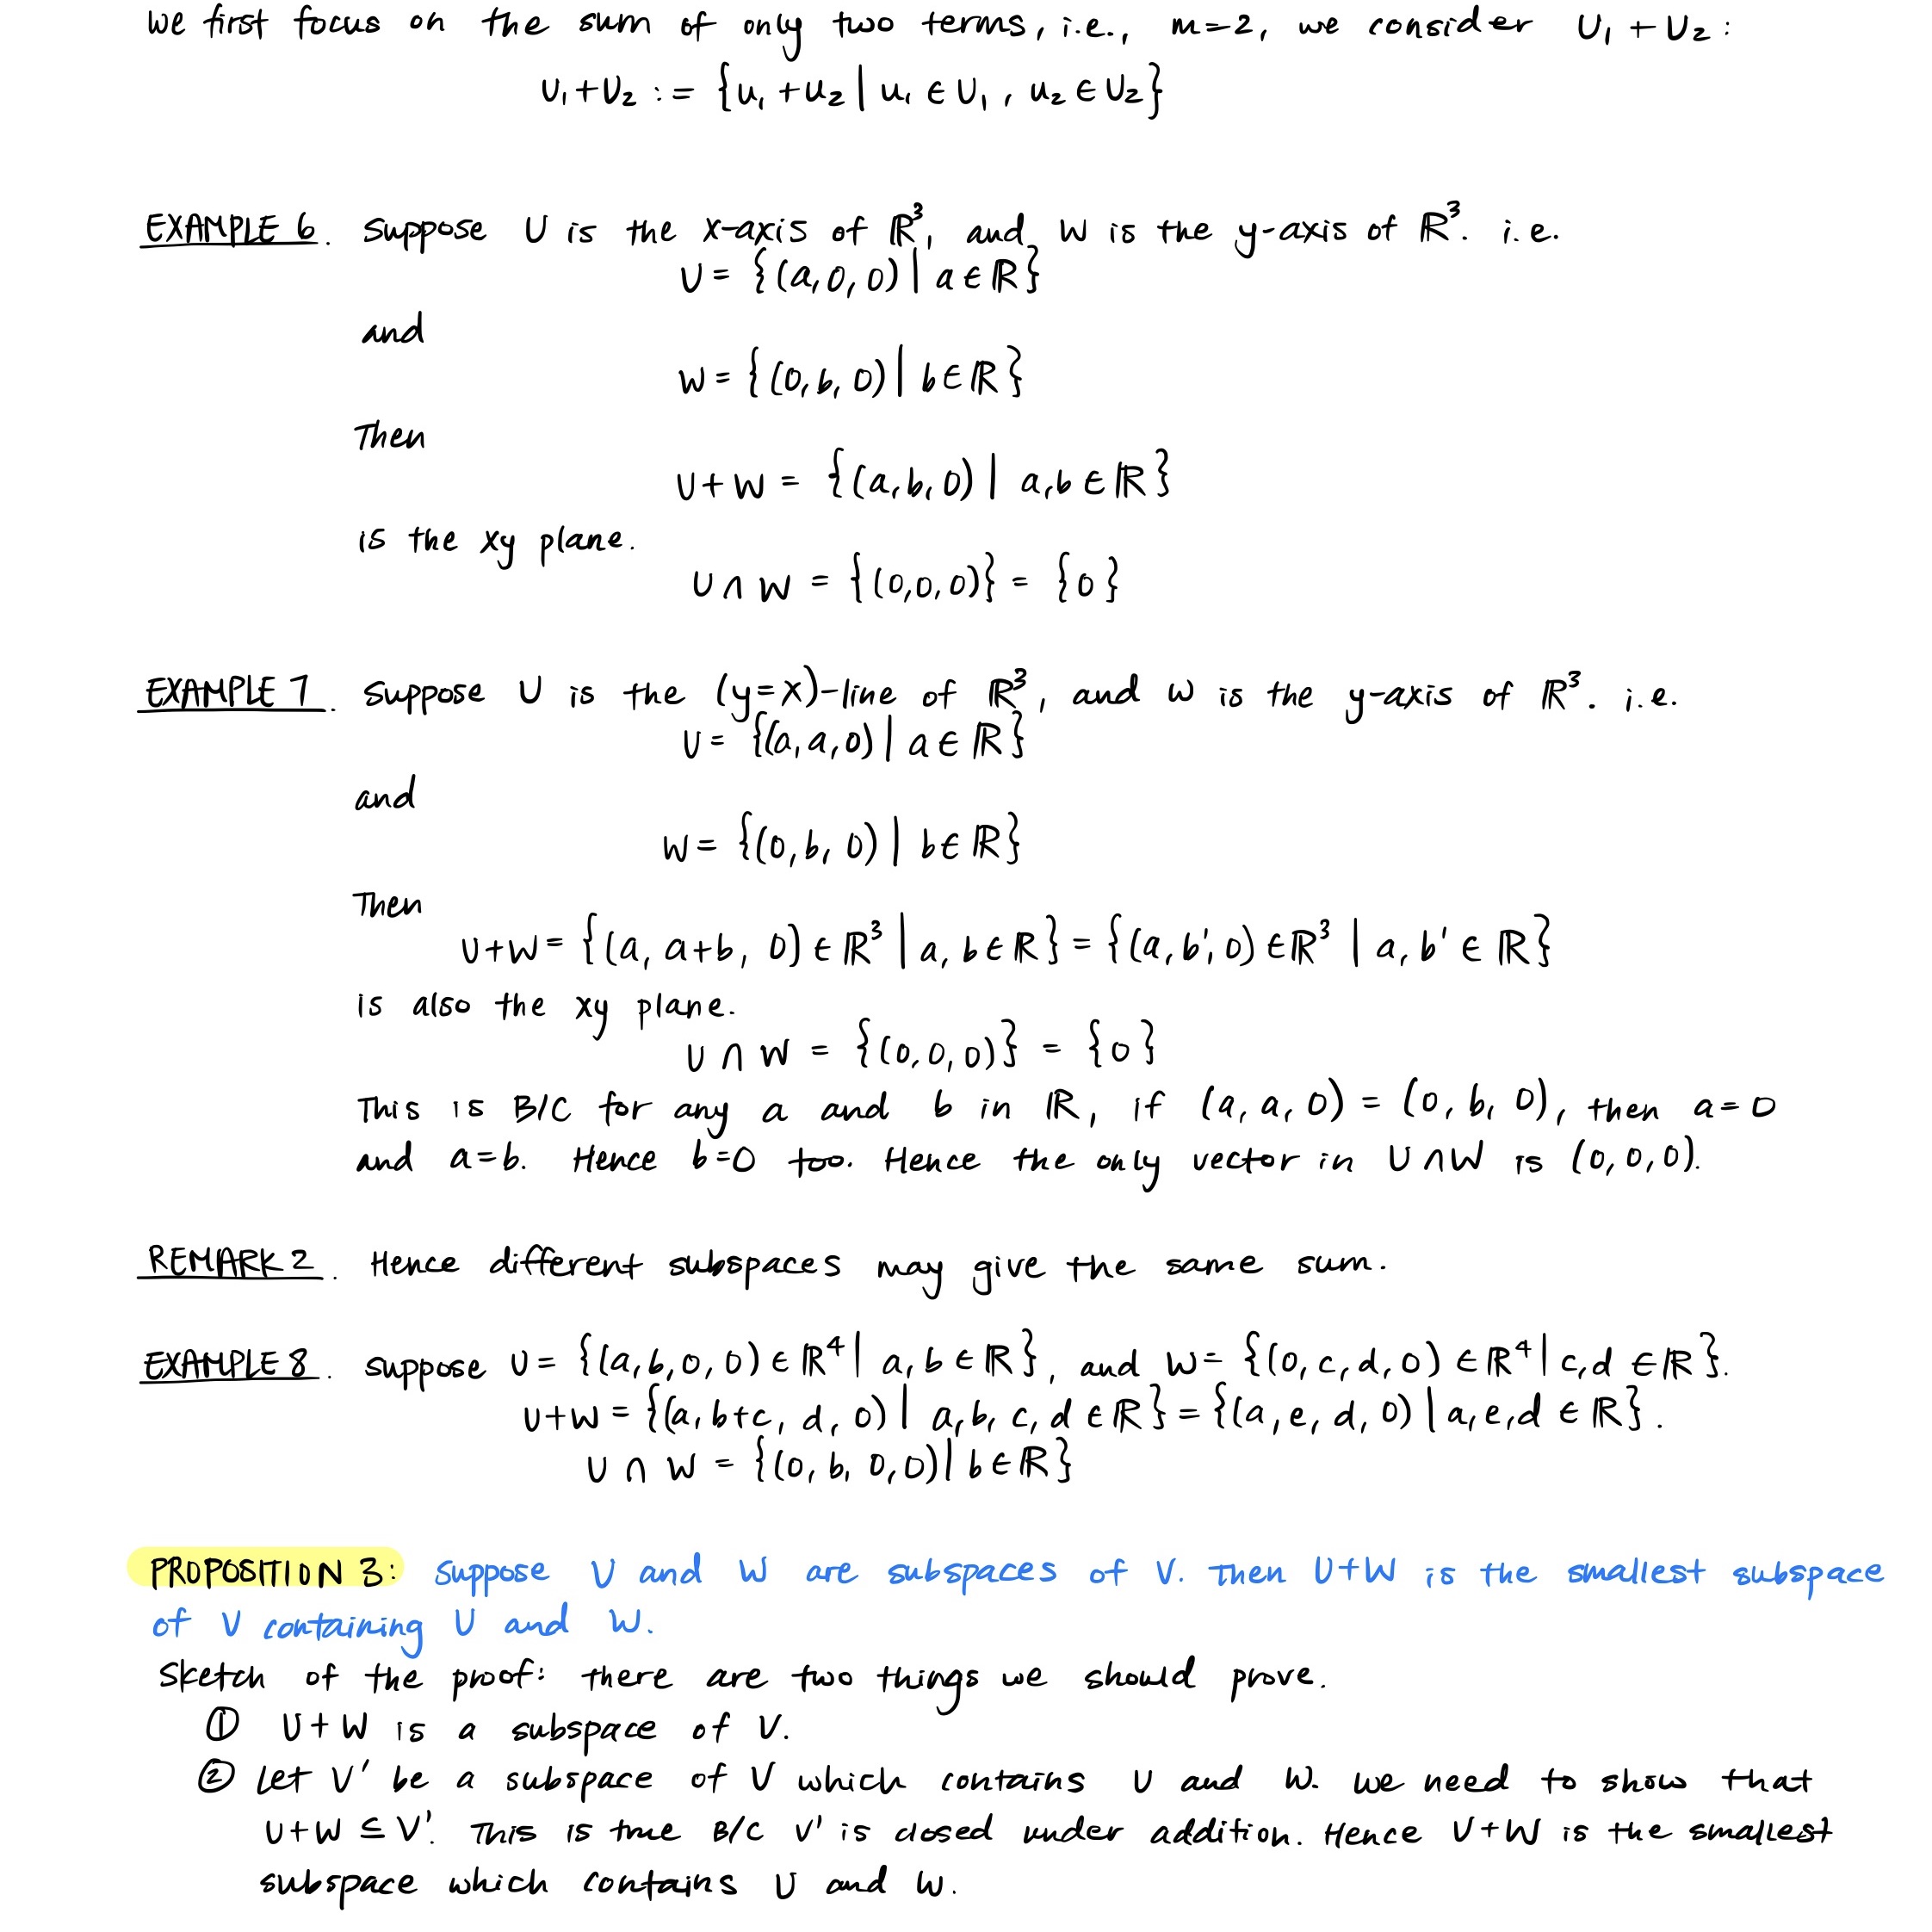 we first focus on the sum of only two terms, i.e., m=2, we consider U₁ + U₂ :
U₁+U₂ := {u₁ + u₂ | u₁ ∈ U₁ , u₂ ∈ U₂}
EXAMPLE 6. Suppose U is the x-axis of ℝ³, and W is the y-axis of ℝ³. i.e.
U = {(a, 0, 0) | a ∈ ℝ}
and
W = {(0, b, 0) | b ∈ ℝ}
Then
U + W = {(a, b, 0) | a, b ∈ ℝ}
is the xy plane.
U ∩ W = {(0,0,0)} = {0}
EXAMPLE 7. Suppose U is the (y=x)-line of ℝ³, and W is the y-axis of ℝ³. i.e.
U = {(a, a, 0) | a ∈ ℝ}
and
W = {(0, b, 0) | b ∈ ℝ}
Then
U+W = {(a, a+b, 0) ∈ ℝ³ | a, b ∈ ℝ} = {(a, b', 0) ∈ ℝ³ | a, b' ∈ ℝ}
is also the xy plane.
U ∩ W = {(0,0,0)} = {0}
This is B/C for any a and b in ℝ, if (a, a, 0) = (0, b, 0), then a=0
and a=b. Hence b=0 too. Hence the only vector in U∩W is (0,0,0).
REMARK 2. Hence different subspaces may give the same sum.
EXAMPLE 8. suppose U = {(a,b,0,0) ∈ ℝ⁴ | a, b ∈ ℝ}, and W = {(0, c, d, 0) ∈ ℝ⁴ | c,d ∈ ℝ}.
U+W = {(a, b+c, d, 0) | a,b, c, d ∈ ℝ} = {(a, e, d, 0) | a, e, d ∈ ℝ}.
U ∩ W = {(0, b, 0,0) | b ∈ ℝ}
PROPOSITION 3: Suppose U and W are subspaces of V. Then U+W is the smallest subspace
of V containing U and W.
Sketch of the proof: there are two things we should prove.
① U + W is a subspace of V.
② Let V' be a subspace of V which contains U and W. we need to show that
U+W ⊆ V'. This is true B/C V' is closed under addition. Hence U+W is the smallest
subspace which contains U and W.